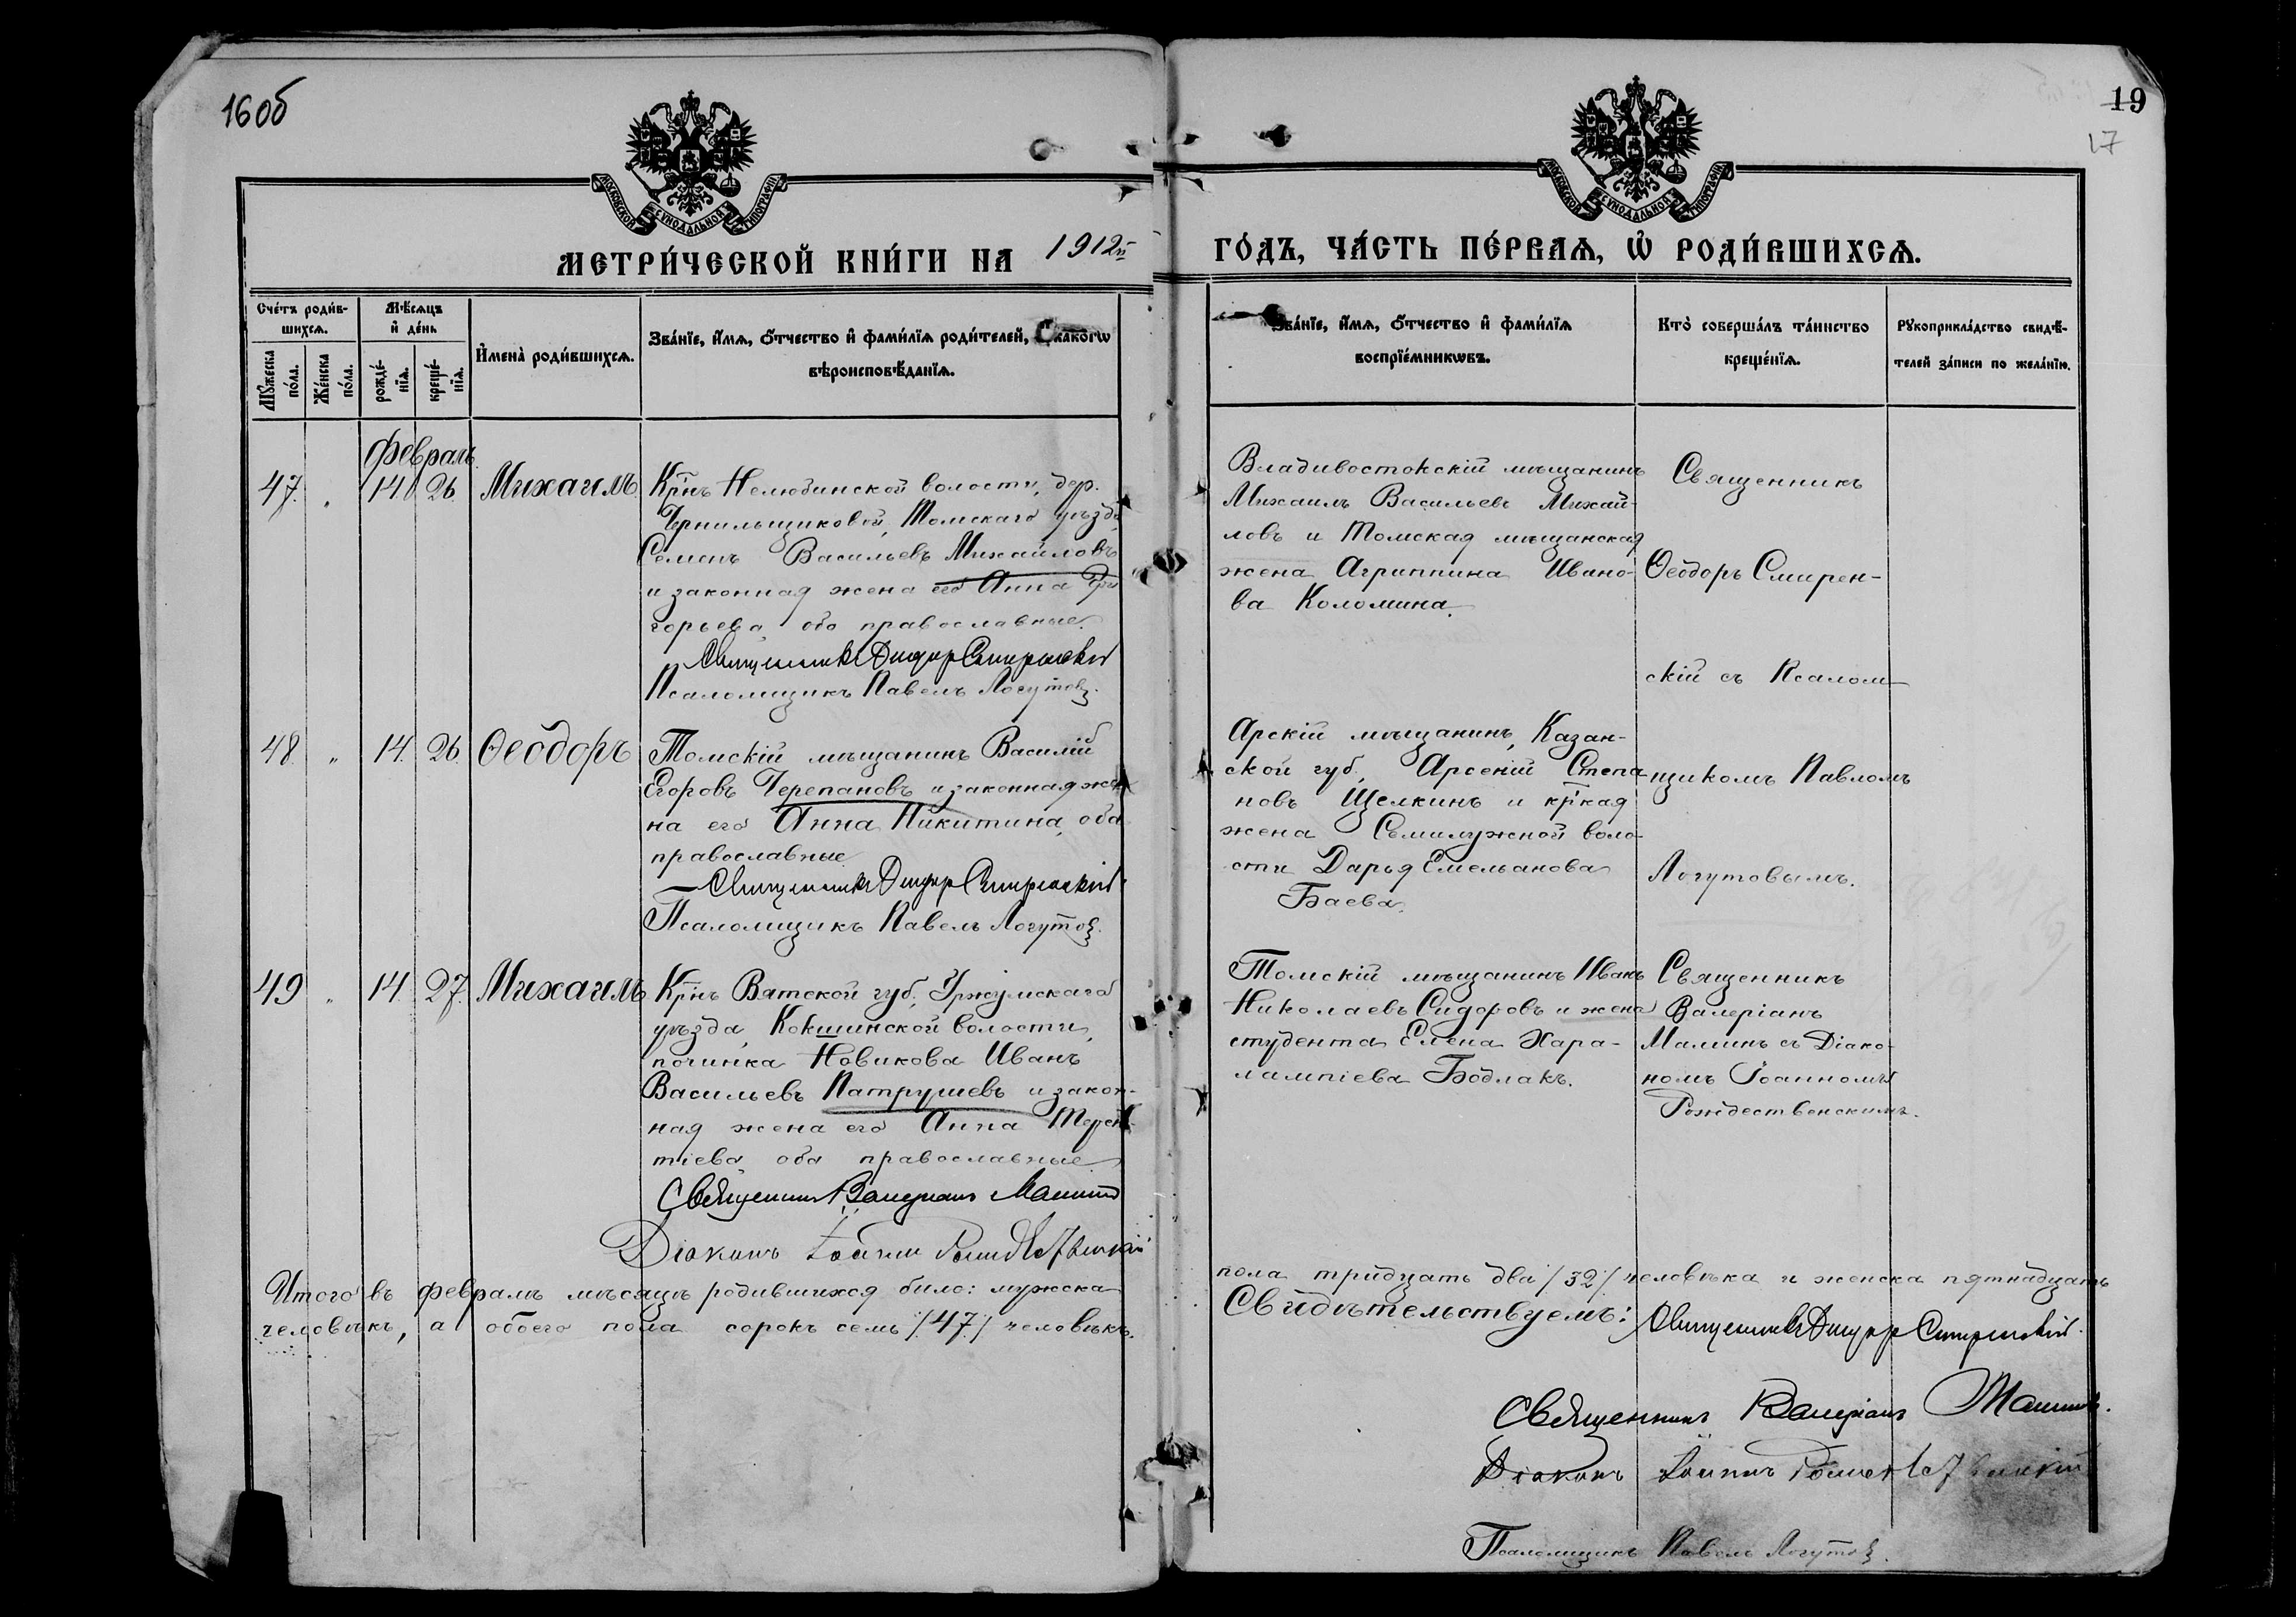 16об
19
17
МОСКОВСКОЙ СѴНОДАЛЬНОЙ ТИПОГРАФІИ
МОСКОВСКОЙ СѴНОДАЛЬНОЙ ТИПОГРАФІИ
МЕТРИ́ЧЕСКОЙ КНИ́ГИ НА 1912й
ГО́ДЪ, ЧА́СТЬ ПЕ́РВАѦ, Ѡ҆ РОДИ́ВШИХСѦ.
Сче́тъ роди́в-
шихсѧ.
Мꙋ́жеска по́ла.
Же́нска по́ла.
Мѣ́сѧцъ
и҆ де́нь
рожде́-
нїѧ.
креще́-
нїѧ.
И҆мена̀ роди́вшихсѧ.
Зва́нїе, и҆́мѧ, ѻ҆́тчество и҆ фамилїѧ роди́телей, и҆ какогѡ
вѣроисповѣ́данїѧ.
Зва́нїе, и҆́мѧ, ѻ҆́тчество и҆ фами́лїѧ
воспрїе́мникѡвъ.
Кто̀ соверша́лъ та́инство
креще́нїѧ.
Рꙋкоприкла́дство свидѣ́-
телей за́писи по жела́нїю.
Февраль.
47. " 14 26 Михаилъ
Кр̃нъ Нелюбинской волости, дер.
Чернильщиковой, Томскаго уѣзда
Семенъ Васильевъ Михайловъ
и законная жена его Анна Гри
горьева, оба православные.
Священникъ Ѳеодоръ Смиренскій
Псаломщикъ Павелъ Логутовъ.
Владивостокскій мѣщанинъ
Михаилъ Васильевъ Михай-
ловъ и Томская мѣщанская
жена Агриппина Ивано-
ва Коломина.
Священникъ
Ѳеодоръ Смирен-
скій съ Псалом-
щикомъ Павломъ
Логутовымъ.
48 " 14. 26. Ѳеодоръ
Томскій мѣщанинъ Василій
Егоровъ Черепановъ и законная же
на его Анна Никитина, оба
православные.
Священникъ Ѳеодоръ Смиренскій
Псаломщикъ Павелъ Логутовъ.
Арскій мѣщанинъ, Казан-
ской губ., Арсеній Степа
новъ Щелкинъ и кр̃кая
жена Семилужной воло-
сти Дарья Емельянова
Баева.
49 " 14 27. Михаилъ
Кр̃нъ Вятской губ., Уржумскаго
уѣзда, Кокшинской волости,
починка Новикова Иванъ
Васильевъ Патрушевъ и закон-
ная жена его Анна Терен-
тіева, оба православные
Священникъ Валеріанъ Маминъ
Діаконъ Іоаннъ Рождественскій
Томскій мѣщанинъ Иванъ
Николаевъ Сидоровъ и жена
студента Елена Хара-
лампіева Бодлакъ.
Священникъ
Валеріанъ
Маминъ съ Діако-
номъ Іоанномъ
Рождественскимъ.
Итого въ февралѣ мѣсяцѣ родившихся было: мужска
пола тридцать два /32/ человѣка и женска пятнадцать
человѣкъ, а обоего пола сорокъ семь /47/ человѣкъ.
Свидѣтельствуемъ: Священникъ Ѳеодоръ Смиренскій.
Священникъ Валеріанъ Маминъ.
Діаконъ Іоаннъ Рождественскій
Псаломщикъ Павелъ Логутовъ.